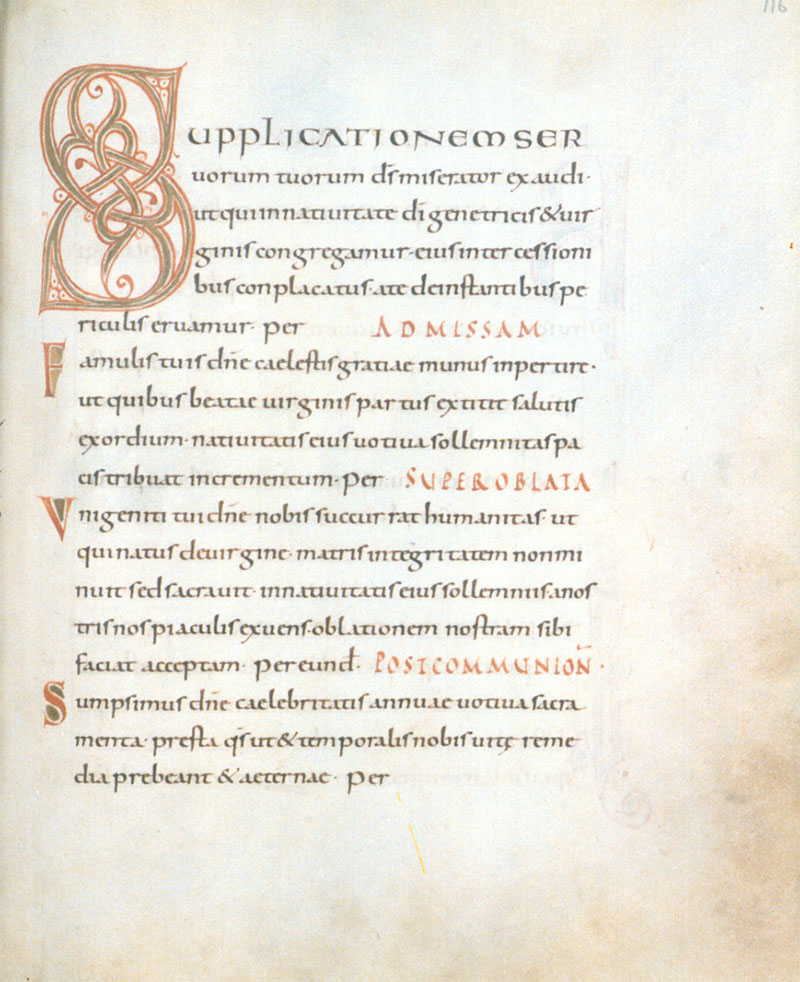 116
SUPPLICATIONEM SER
uorum tuorum ds miserator exaudi·
ut qui in natiuitate di genetricis & uir
ginis congregamur· eius intercessioni
bus conplacatus· a te de instantibus pe
riculis eruamur· per AD MISSAM
Famulis tuis dne caelestis gratiae munus inpertire·
ut quibus beatae uirginis partus extitit salutis
exordium· natiuitatis eius uotiua sollemnitas pa
cis tribuat incrementum· per SUPER OBLATA
Vnigeniti tui dne nobis succurrat humanitas· ut
qui natus de uirgine· matris integritatem non mi
nuit sed sacrauit· in natiuitatis eius sollemniis a nos
tris nos piaculis exuens· oblationem nostram sibi
faciat acceptam· per eund· POST COMMUNION·
Sumpsimus dne caelebritatis annuae uotiua sacra
menta· presta qs ut & temporalis nobis uitę reme
dia prebeant & aeternae· per